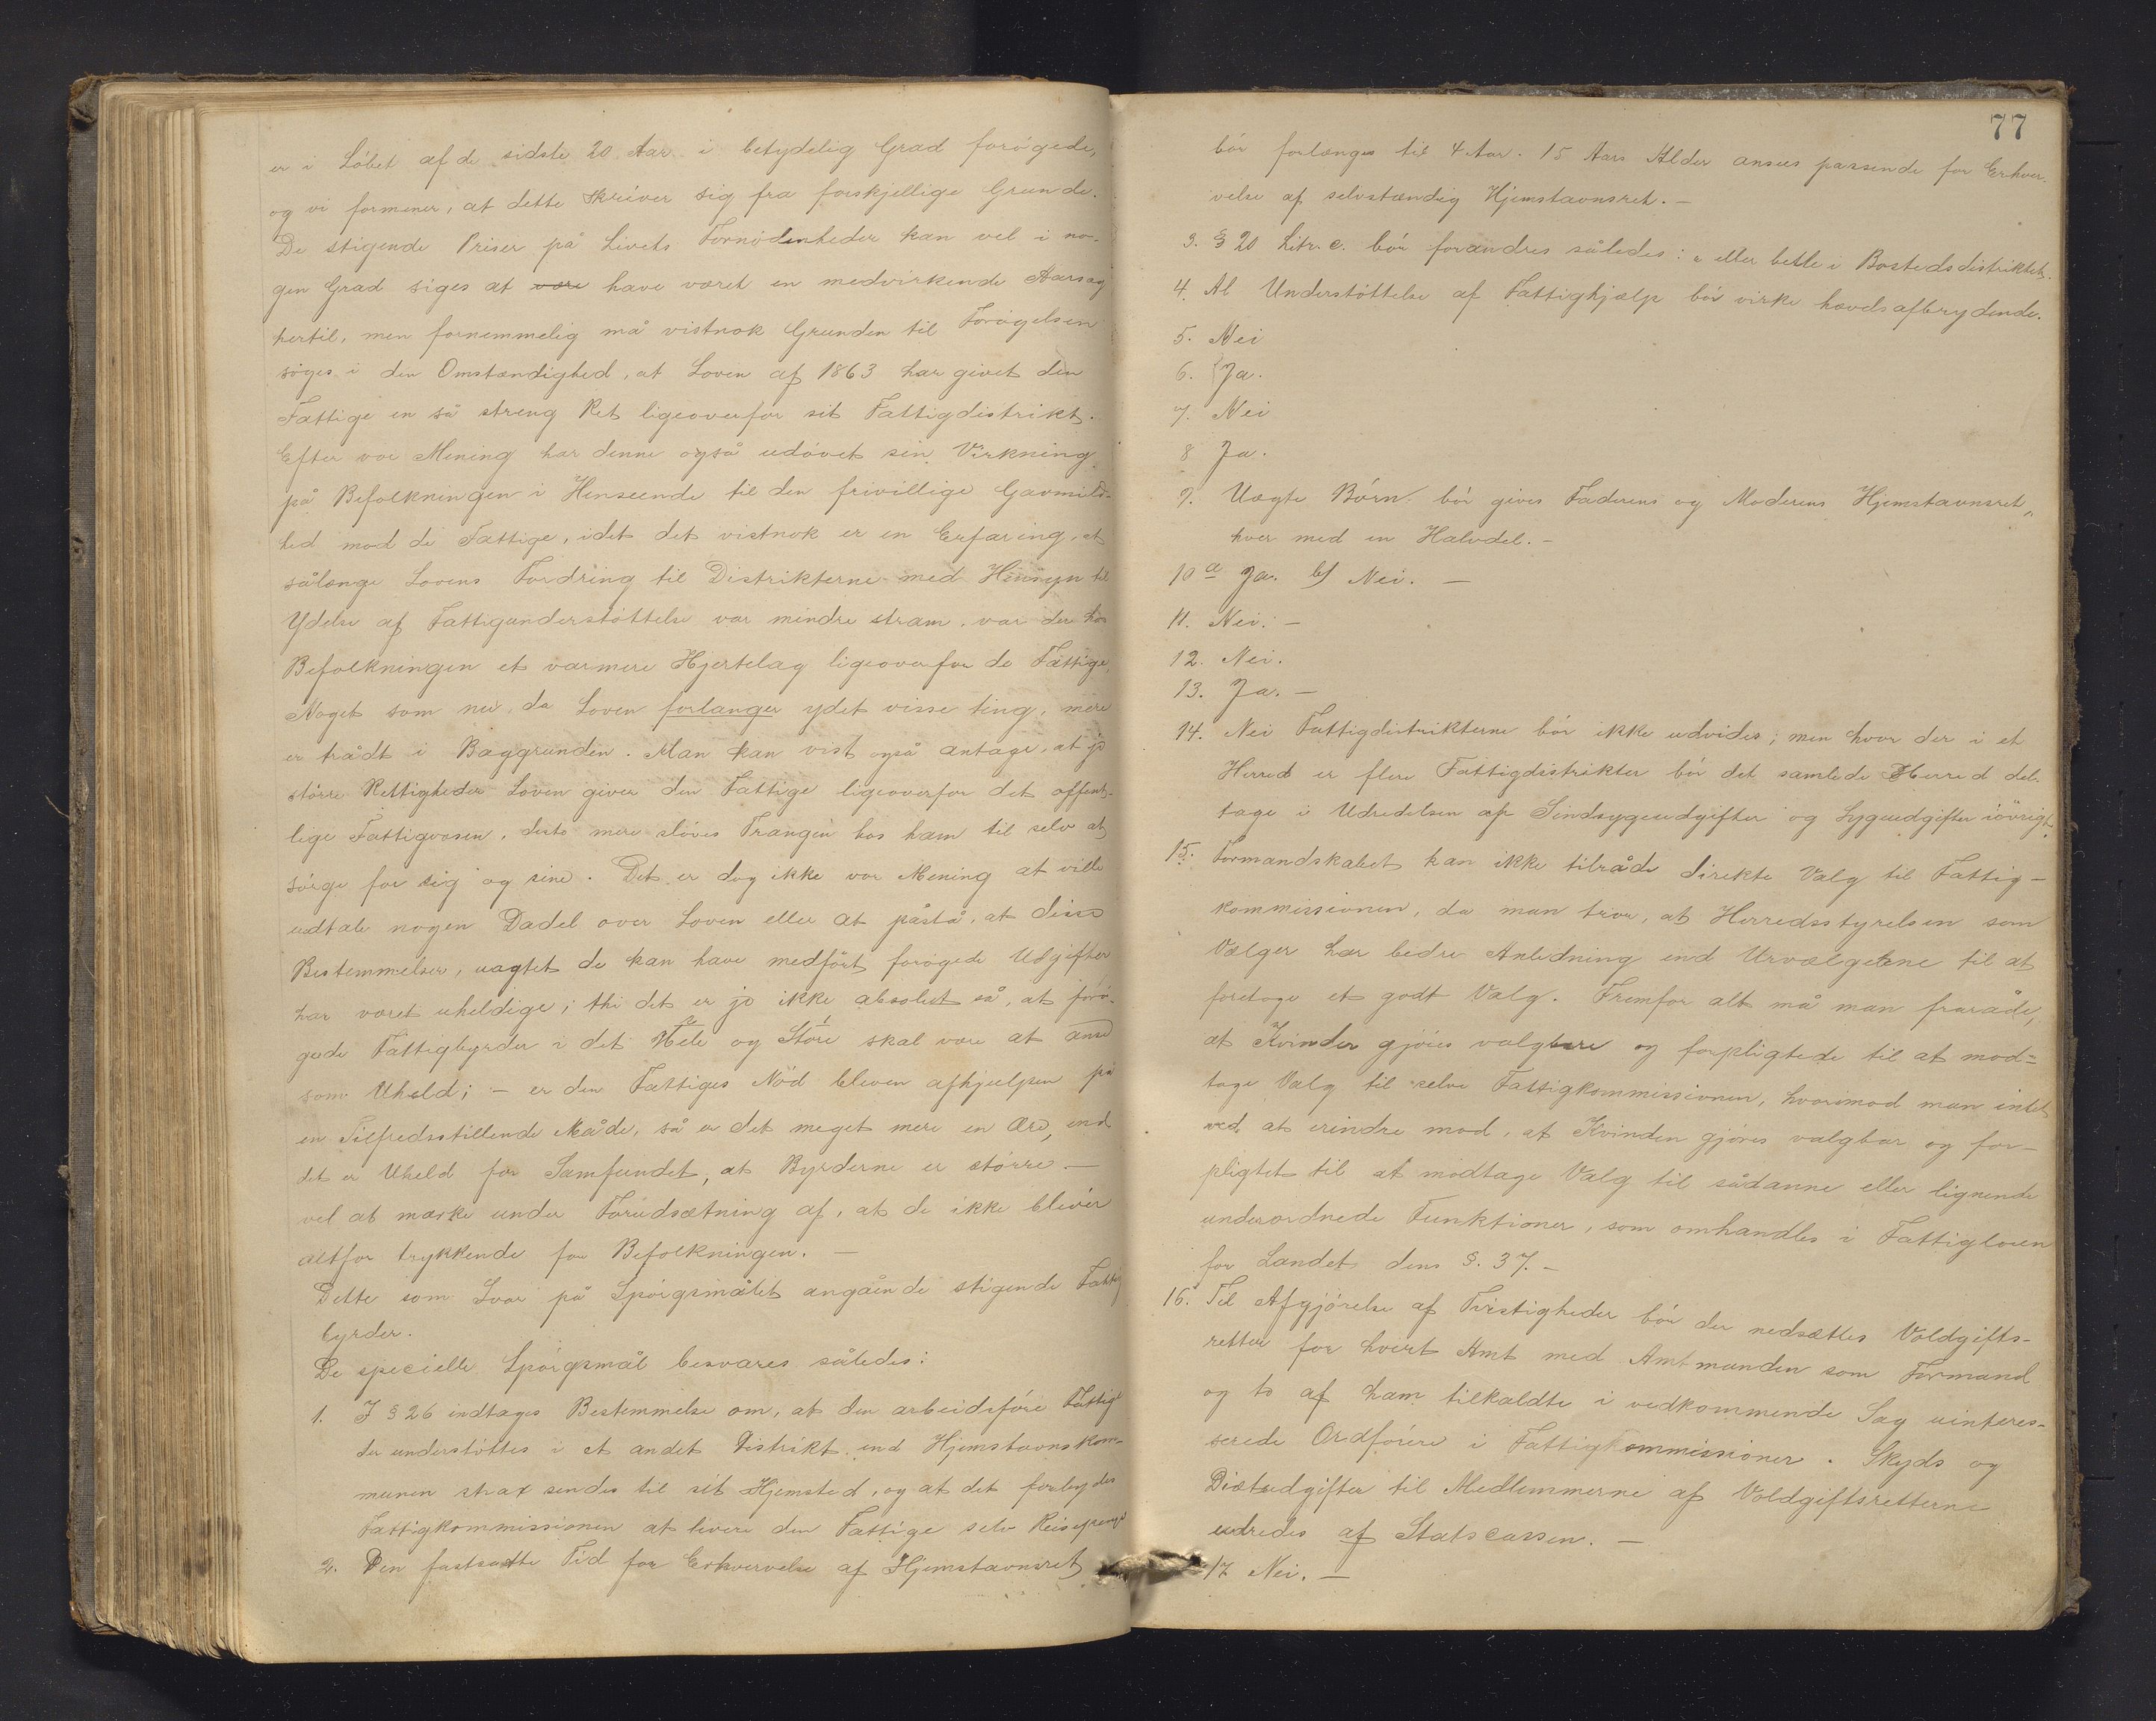 er i Löbet af de sidste 20 Aar i betydelig Grad forögede,
og vi formener, at dette skriver sig fra forskjellige Grunde.
De stigende Priser på Livets Fornödenheder kan vel i no-
gen Grad siges at være have været en medvirkende Aarsag
hertil, men fornemmelig må vistnok Grunden til Forögelsen
söges i den Omstændighed, at Loven af 1863 har givet den
Fattige en så streng Ret ligeoverfor sit Fattigdistrikt.
Efter vor Mening har denne også udövet sin Virkning
på Befolkningen i Henseende til den frivillige Gavmild-
hed mod de Fattige, idet det vistnok er en Erfaring, at
sålænge Lovens Fordring til Distrikterne med Hensyn til
Ydelse af Fattigunderstöttelse var mindre stram, var der hos
Befolkningen et varmere Hjertelag ligeoverfor de Fattige,
Noget som nu, da Loven forlanger ydet visse ting, mere
er trådt i Baggrunden. Man kan vist også antage, at jo
större Rettigheder Loven giver den Fattige ligeoverfor det offent-
lige Fattigvæsen, desto mere slöves Trangen hos ham til selv at
sörge for sig og sine. Det er dog ikke vor Mening at ville
udtale nogen Dadel over Loven eller at påstå, at disse
Bestemmelser, uagtet de kan have medfört forögede Udgifter
har været uheldige; thi det er jo ikke absolut så, at forö-
gede Fattigbyrder i det Hele og Store skal være at anse
som Uheld; - er den Fattiges Nöd bleven afhjulpen på
en Tilfredsstillende Måde, så er det meget mere en Ære, end
det er Uheld for Samfundet, at Byrderne er större. —
vel at mærke under Forudsætning af, at de ikke blivér
altfor trykkende for Befolkningen. —
Dette som Svar på Spörgsmålet angående stigende Fattig
byrder.
De specielle Spörgsmål besvares således:
1. I § 26 indtages Bestemmelse om, at den arbeidsföre Fattige
der understöttes i et andet Distrikt end Hjemstavnskom-
munen strax sendes til sit Hjemsted, og at det forbydes
Fattigkommissionen at levere den Fattige selv Reisepenge
2. Den fastsatte Tid for Erhvervelse af Hjemstavnsret
77
bör forlænges til 4 Aar. 15 Aars Alder ansees passende for Erhver-
velse af selvstændig Hjemstavnsret. —
3. § 20 Litr. c. bör forandres således: „ eller betle i Bostedsdistriktet.
4. Al Understöttelse af Fattighjælp bör virke hævdsafbrydende.
5. Nei
6. Ja.
7. Nei
8 Ja.
9. Uægte Börn bör gives Faderens og Moderens Hjemstavnsret,
hver med en Halvdel. —
10 a Ja. b/ Nei. —
11. Nei. —
12. Nei.
13. Ja. —
14. Nei Fattigdistrikterne bör ikke udvides; men hvor der i et
Herred er flere Fattigdistrikter bör det samlede Herred del-
tage i Udredelsen af Sindsygeudgifter og Sygeudgifter iövrigt.
15. Formandskabet kan ikke tilråde direkte Valg til Fattig-
kommissionen, da man tror, at Herredsstyrelsen som
Vælger har bedre Anledning end Urvælgerne til at
foretage et godt Valg. Fremfor alt må man fraråde,
at Kvinder gjöres valgbare og forpligtede til at mod-
tage Valg til selve Fattigkommissionen, hvorimod man intet
ved at erindre mod, at Kvinden gjöres valgbar og for-
pligtet til at modtage Valg til sådanne eller lignende
underordnede Funktioner, som omhandles i Fattigloven
for Landet dens §. 37. —
16. Til Afgjörelse af Tvistigheder bör der nedsættes Voldgifts-
retter for hvert Amt med Amtmanden som Formand
og to af ham tilkaldte i vedkommende Sag uinteres-
serede Ordförere i Fattigkommissioner. Skyds og
Diætudgifter til Medlemmerne af Voldgiftsretterne
udredes af Statscassen. —
17 Nei. —